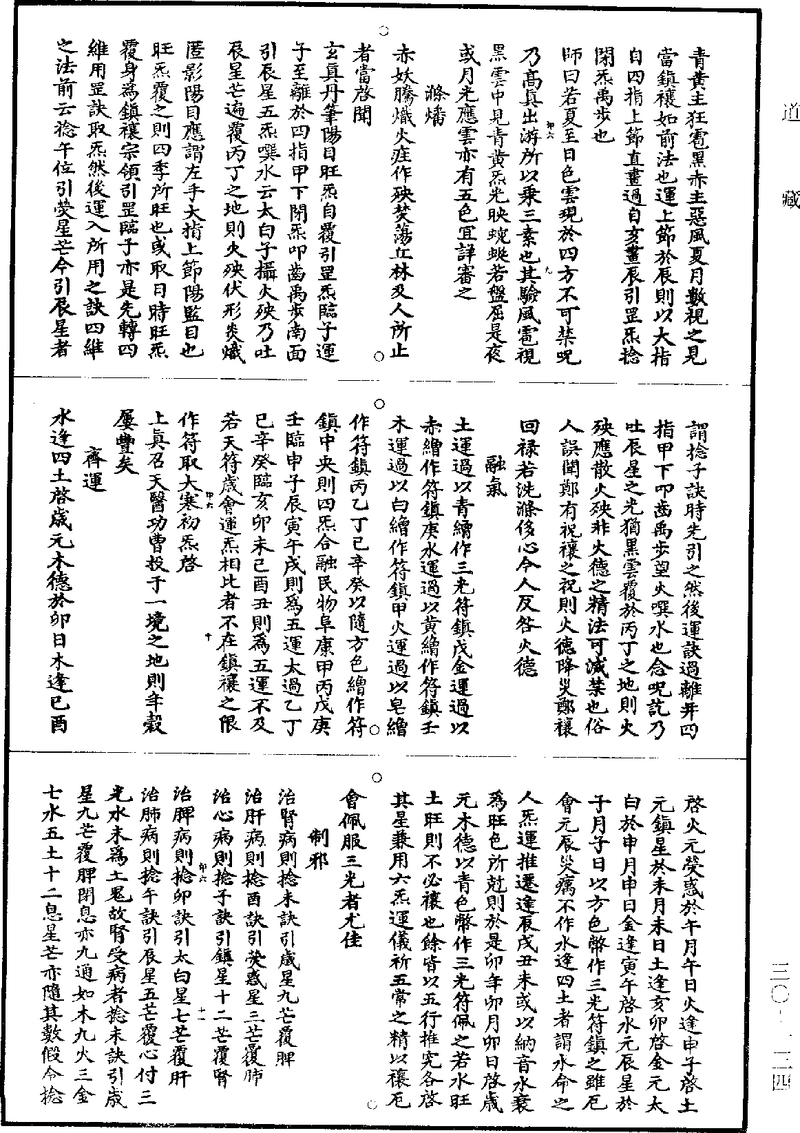 道藏
青黃主狂雹黑赤主惡風夏月數視之見
當鎮禳如前法也運上節於辰則以大指
自四指上節直畫過自亥畫辰引罡炁捻
閉炁禹步也
師曰若夏至日色雲現於四方不可禁呪
乃高真出游所以乘三素也其驗風雹視
黑雲中見青黃炁光映蜿蜒若盤屈是夜
或月光應雲亦有五色宜詳審之
滌燔
赤妖騰熾火疰作殃焚蕩丘林及人所止
者當啓聞
玄真丹筆陽目旺炁自覆引罡炁臨子運
子至離於四指甲下閉炁叩齒禹步南面
引辰星五炁噀水云太白子攝火殃乃吐
辰星芒遍覆丙丁之地則火殃伏形炎熾
匿影陽目應謂左手大指上節陽監目也
旺炁覆之則四季所旺也或取日時旺炁
覆身為鎮禳宗領引罡臨子亦是先轉四
維用罡訣取炁然後運入所用之訣四維
之法前云捻午位引熒星芒今引辰星者
謂捻子訣時先引之然後運訣過離井四
指甲下叩齒禹步望火噀水也念呪訖乃
吐辰星之光猶黑雲覆於丙丁之地則火
殃應散火殃非火德之精法可滅禁也俗
人誤聞鄭有祝禳之祝則火德降災鄭禳
回祿若洗滌侈心令人反咎火德
融氣
土運過以青繒作三光符鎮戊金運過以
赤繒作符鎮庚水運過以黃繒作符鎮壬
木運過以白繒作符鎮甲火運過以皂繒
作符鎮丙乙丁己辛癸以隨方色繒作符
鎮中央則四炁合融民物阜康甲丙戊庚
壬臨申子辰寅午戌則為五運太過乙丁
己辛癸臨亥卯未巳酉丑則為五運不及
若天符歲會運炁相比者不在鎮禳之限
作符取大寒初炁啓
上真召天醫功曹投于一境之地則年穀
屢豐矣
齊運
水逢四土啓歲元木德於卯日木逢巳酉
啓火元熒惑於午月午日火逢申子啓土
元鎮星於未月未日土逢亥卯啓金元太
白於申月申日金逢寅午啓水元辰星於
子月子日以方色幣作三光符鎮之雖厄
會元辰災癘不作水逢四土者謂水命之
人炁運推遷逢辰戌丑未或以納音水衰
為旺色所尅則於是卯年卯月卯日啓歲
元木德以青色幣作三光符佩之若水旺
土旺則不必禳也餘皆以五行推究各啓
其星兼用六炁運儀祈五常之精以禳厄
會佩服三光者尤佳
制邪
治腎病則捻未訣引歲星九芒覆脾
治肝病則捻酉訣引熒惑星三芒覆肺
治心病則捻子訣引鎮星十二芒覆腎
治脾病則捻卯訣引太白星七芒覆肝
治肺病則捻午訣引辰星五芒覆心付三
光水未為土鬼故腎受病者捻未訣引歲
星九芒覆脾閉息亦九通如木九火三金
七水五土十二息星芒亦隨其數假令捻
三〇—一三四